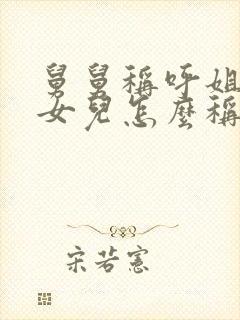 舅舅稱呼姐
女兒怎麼稱
宋若憲